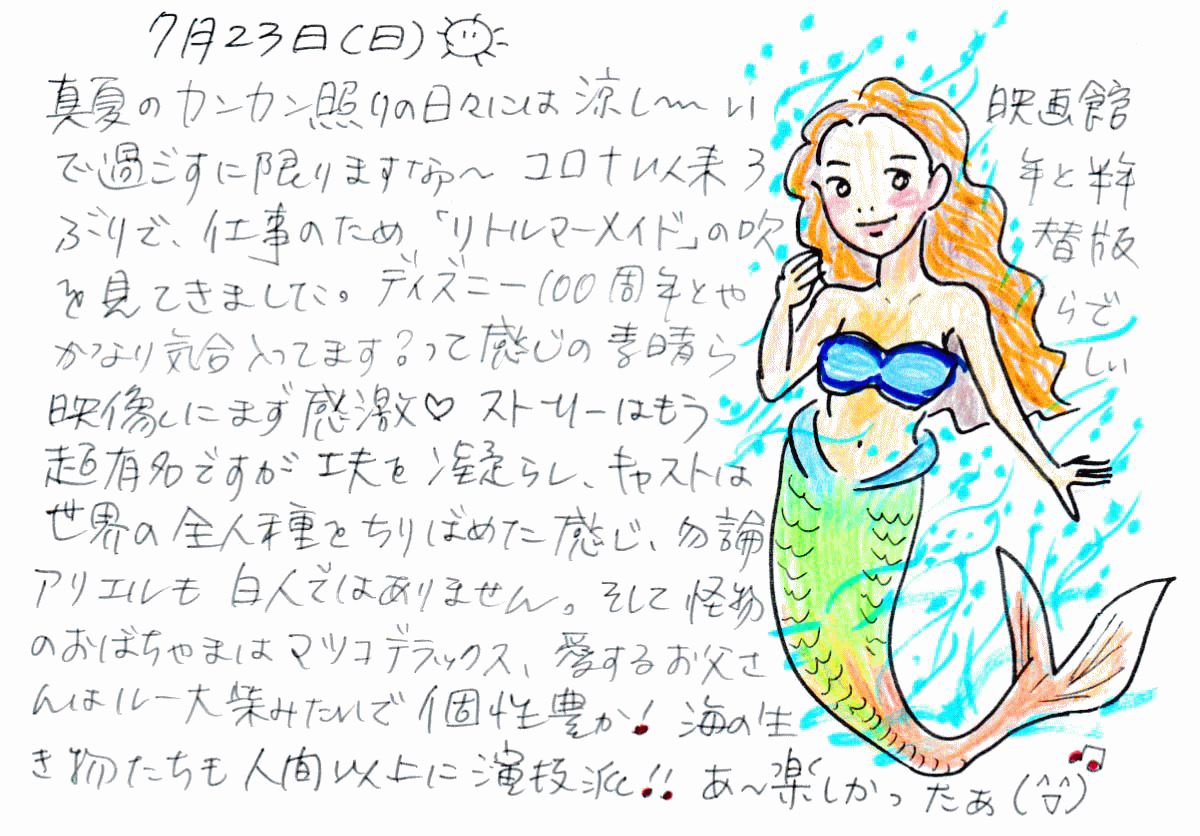 7月23日(日)
真夏のカンカン照りの日々には涼し〜い映画館
で過ごすに限りますなぁ〜 コロナ以来3年と半年
ぶりで、仕事のため「リトルマーメイド」の吹替版
を見てきました。ディズニー100周年とやらで
かなり気合入ってます?って感じの素晴らしい
映像にまず感激♡ ストーリーはもう
超有名ですが工夫を凝らし、キャストは
世界の全人種をちりばめた感じ、勿論
アリエルも白人ではありません。そして怪物
のおばちゃまはマツコデラックス、愛するお父さ
んはルー大柴みたいで個性豊か! 海の生
き物たちも人間以上に演技派!! あ〜楽しかったぁ(^▽^)♫